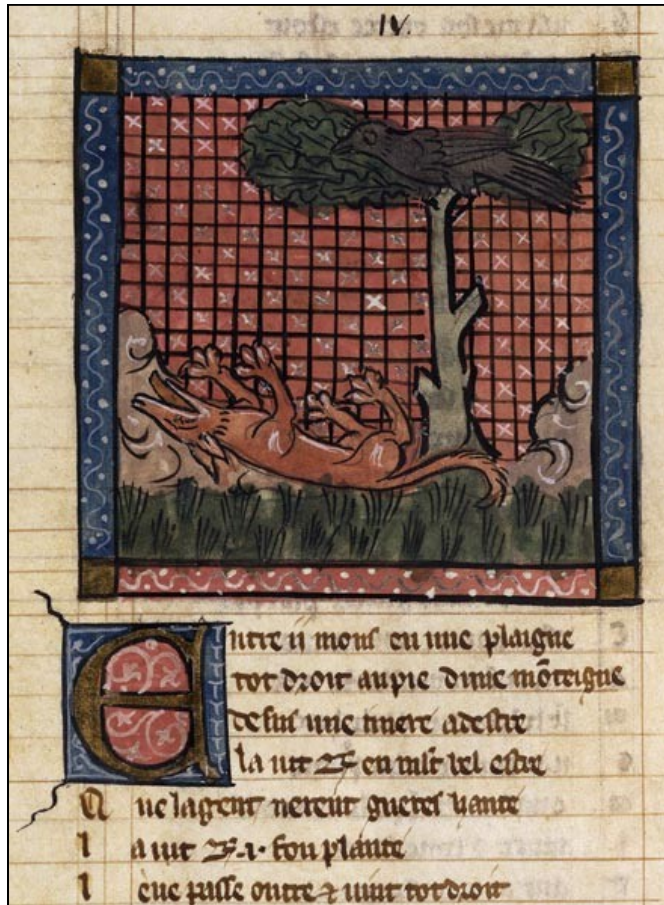 IV.
Entre ii mons en une plaigne
tot droit au pie dune mõteigne
desus une rivere a destre
la vit R. en mlt bel estre
Q ue la gent nerent gueres hante
l a vit R. .i. fou plante
l eue passe outre ⁊ vint tot droit